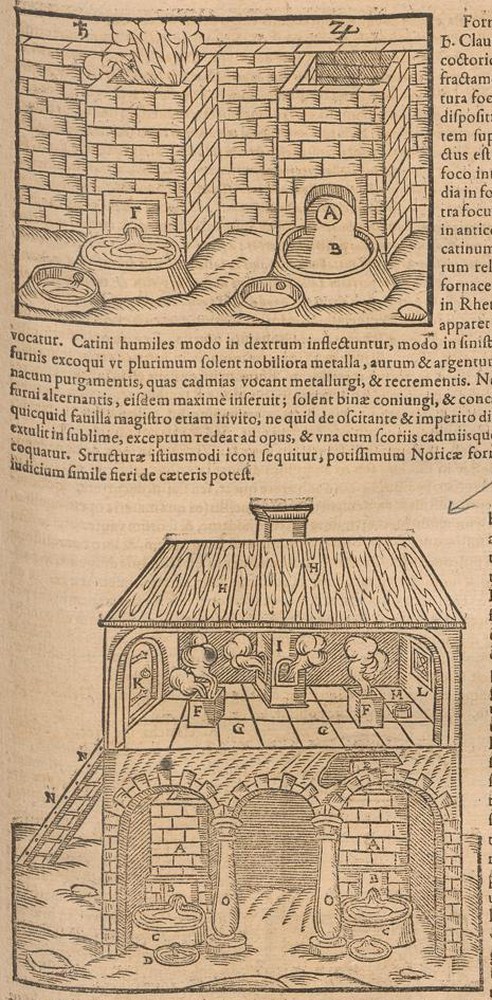 ♄
♃
Γ
A
B
Forn
♄. Clau
coctorio
fractam
tura foc
dispositi
tem sup
ctus est
foco int
dia in fo
tra focu
in antico
catinum
rum reli
fornace
in Rhe
apparet
vocatur. Catini humiles modo in dextrum inflectuntur, modo in sinist
furnis excoqui vt plurimum solent nobiliora metalla, aurum & argentum
nacum purgamentis, quas cadmias vocant metallurgi, & recrementis. N
furni alternantis, eisdem maximè inseruit; solent binæ coniungi, & conc
quicquid fauilla magistro etiam inuito, ne quid de oscitante & imperito di
extulit in sublime, exceptum redeat ad opus, & vna cum scoriis cadmiisque
coquatur. Structuræ istiusmodi icon sequitur, potissimum Noricæ forn
iudicium simile fieri de cæteris potest.
H
H
I
K
F
F
H
L
G
G
N
N
A
A
B
B
C
C
D